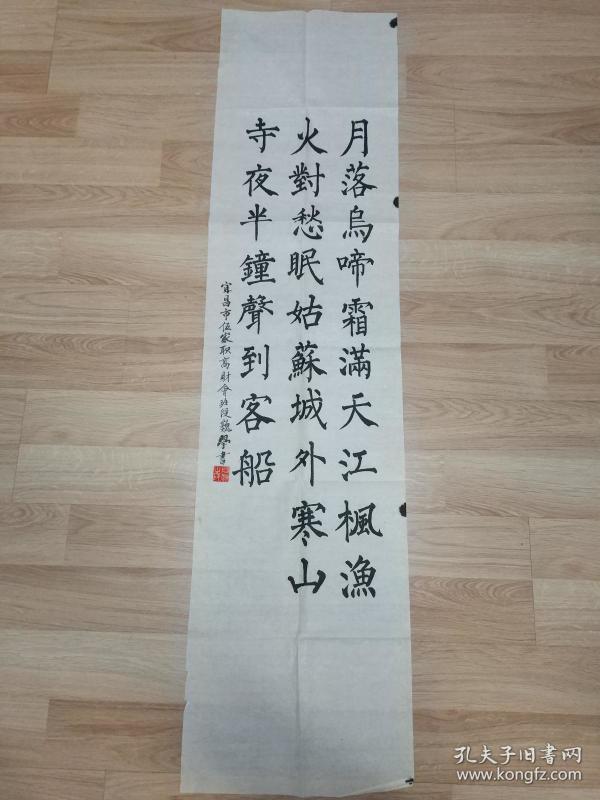 月落烏啼霜滿天江楓漁
火對愁眠姑蘇城外寒山
寺夜半鐘聲到客船
宜昌市伍家职高財會班段巍學書
孔夫子旧書网
www.kongfz.com